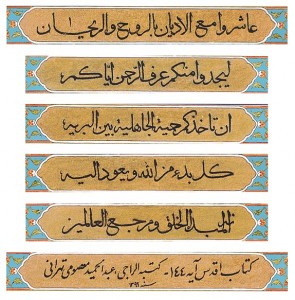 عاشروا مع الاديان بالروح والريحان
ليجدوا منكم عرف الرحمن اياكم
ان تاخذكم حمية الجاهلية بين البريه
كل بدء من الله و يعود اليه
انه لمبدء الخلق و مرجع العالمين
كتاب اقدس آیه ۱۴۴ - كتبه الراجی عبدالحمید معصومی تهرانی